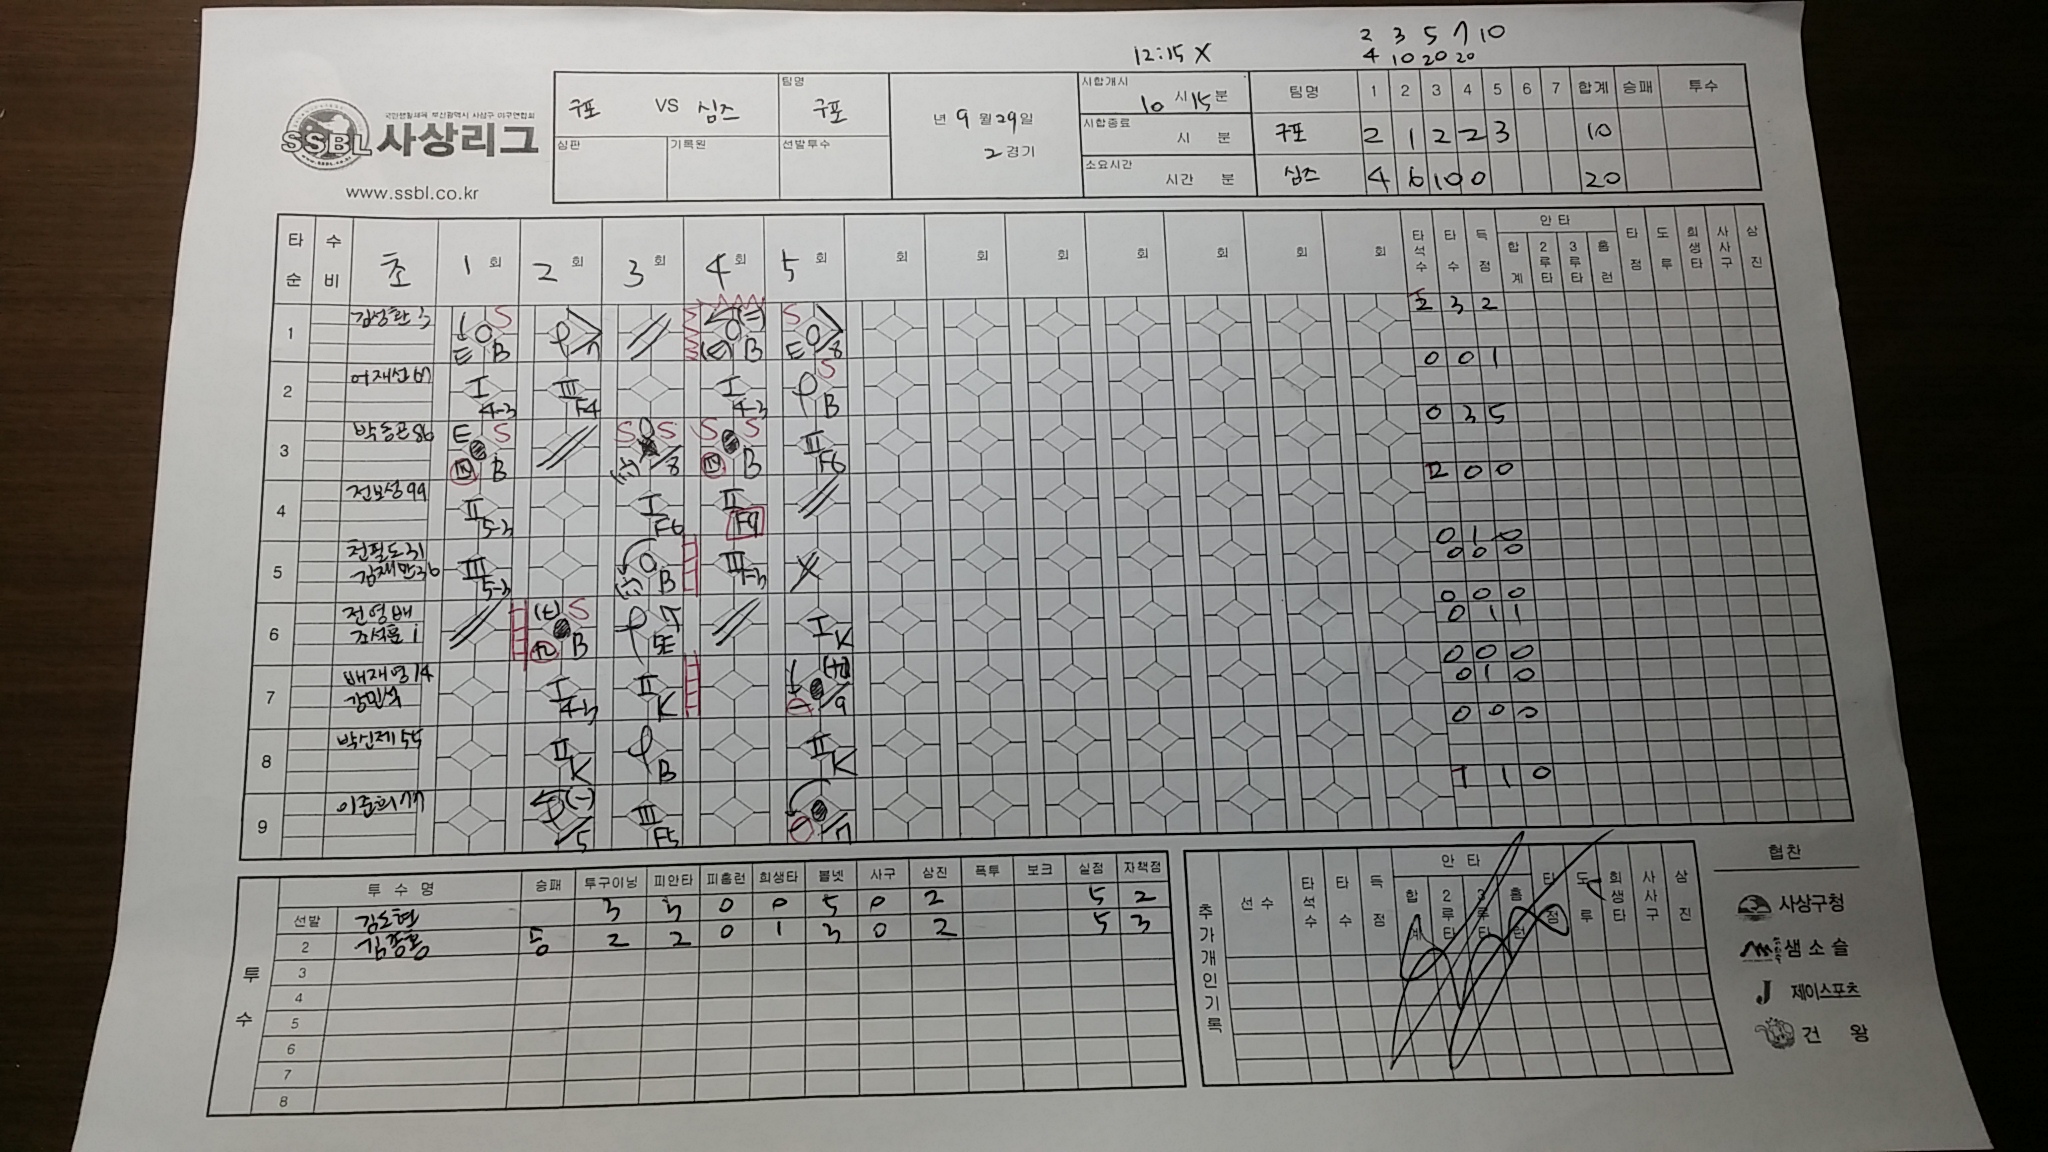 2 3 5 7 10
12:15 X
4 10 20 20
국민생활체육 부산광역시 사상구 야구연합회
SSBL 사상리그
www.ssbl.co.kr
구포 VS 심즈
팀명
구포
심판
기록원
선발투수
년 9 월 29 일
2 경기
시합개시
10 시 15 분
시합종료
시 분
소요시간
시간 분
팀명 1 2 3 4 5 6 7 합계 승패 투수
구포 2 1 2 2 3 10
심즈 4 6 10 0 20
타순 수비 초 1 회 2 회 3 회 4 회 5 회 회 회 회 회 회 회 회 타석수 타수 득점 안타 합계 2루타 3루타 홈런 타점 도루 희생타 사사구 삼진
1 김성환 3 S E B S E /8 2 3 2
2 I 4-3 III F4 I 4-3 S B 0 0 1
3 E S B S S /8 S S B II F6 0 3 5
4 전보성 99 II 5-3 I F6 II F9 2 0 0
5 전필도 31 III 5-3 B III F3 0 1 0
김재만 36 0 0 0
6 전영배 S B I K 0 0 0
조석훈 1 0 1 1
7 배재영 14 I 4-3 II K /9 0 0 0
강민석 0 1 0
8 박신제 55 II K B II K 0 0 0
9 이준희 77 (-) /5 III F5 /7 1 1 0
투수 투수명 승패 투구이닝 피안타 피홈런 희생타 볼넷 사구 삼진 폭투 보크 실점 자책점
선발 김도현 3 3 0 0 5 0 2 5 2
2 2 2 0 1 3 0 2 5 3
3
4
5
6
7
8
추가개인기록 선수 타석수 타수 득점 안타 합계 2루타 3루타 홈런 타점 도루 희생타 사사구 삼진
협찬
사상구청
샘소슬
J 제이스포츠
건왕